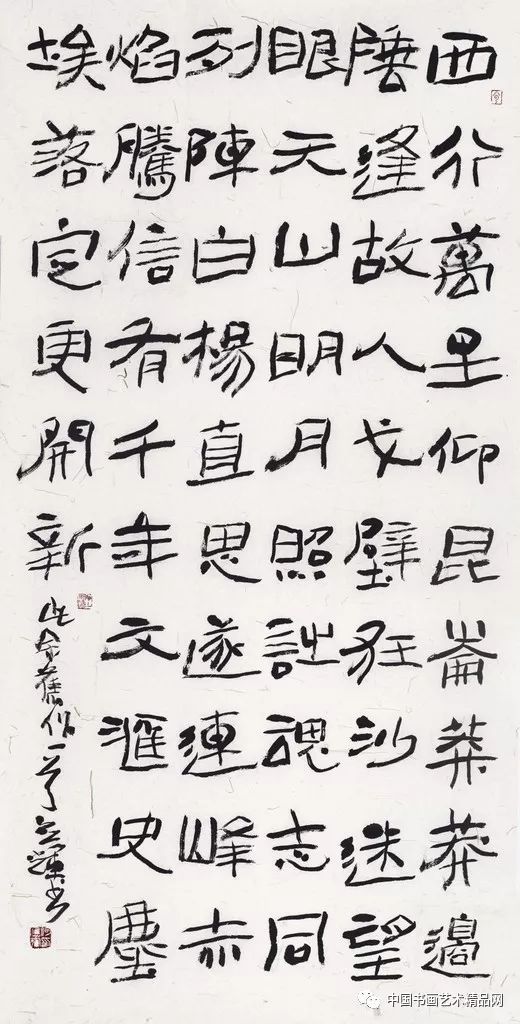 西行萬里仰昆崙莽莽邊
陲逢故人戈壁狂沙迷望
眼天山明月照詩魂志同
列陣白楊直思遂連峰赤
焰騰信有千年文滙史塵
埃落定更開新
此余舊作
中国书画艺术精品网